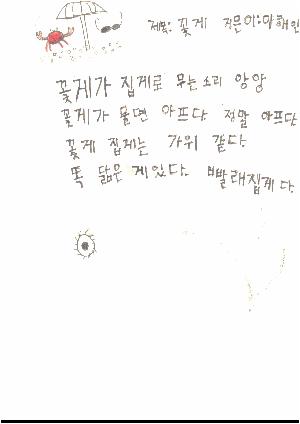 제목: 꽃게 지은이: 마해인
꽃게가 집게로 무는 소리 앙앙
꽃게가 물면 아프다 정말 아프다
꽃게 집게는 가위 같다.
똑 닮은 게 있다. 빨래집게다.